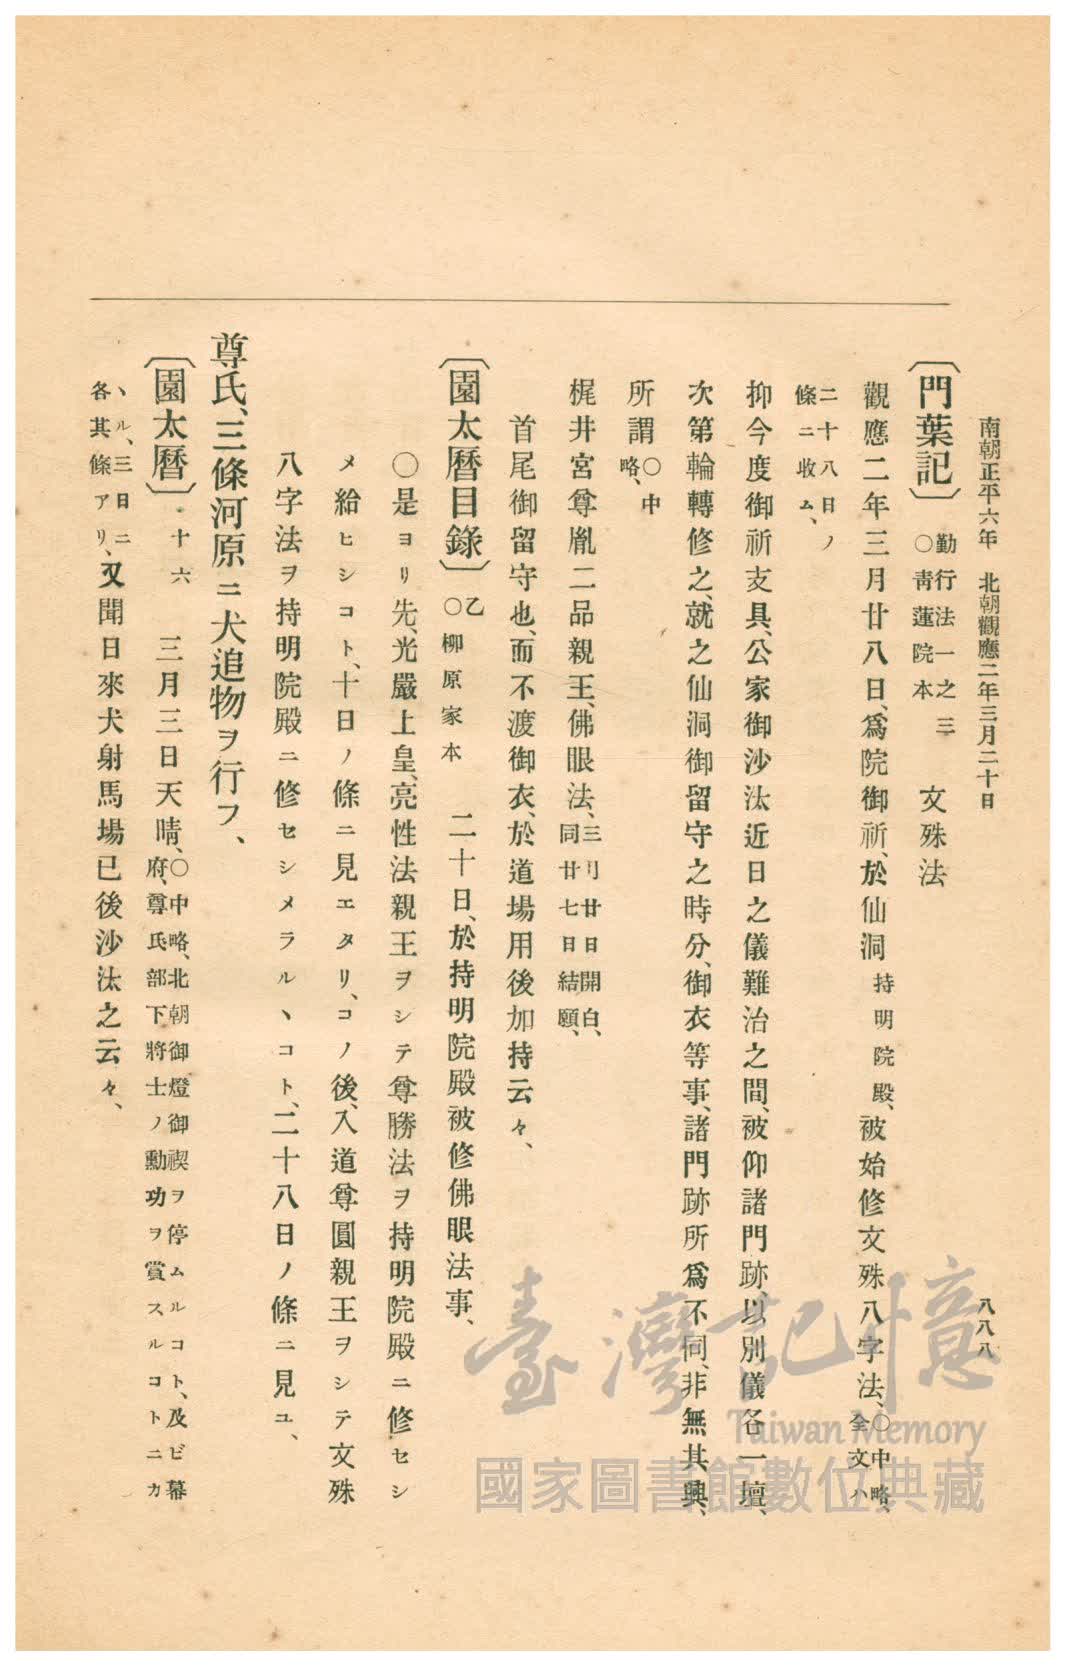 南朝正平六年　北朝觀應二年三月二十日
八八八
〔門葉記〕勤行法一之三　文殊法
○青蓮院本
觀應二年三月廿八日、爲院御祈、於仙洞持明院殿、被始修文殊八字法、○中略、全文ハ
二十八日ノ條ニ收ム、
抑今度御祈支具、公家御沙汰近日之儀難治之間、被仰諸門跡、以別儀各一壇、
次第輪轉修之、就之仙洞御留守之時分、御衣等事、諸門跡所爲不同、非無其興、
所謂○中略、
梶井宮尊胤二品親王、佛眼法、三月廿日開白、同廿七日結願、
首尾御留守也、而不渡御衣、於道場用後加持云々、
〔園太曆目錄〕乙　二十日、於持明院殿被修佛眼法事、
○柳原家本
○是ヨリ先、光嚴上皇、亮性法親王ヲシテ尊勝法ヲ持明院殿ニ修セシ
メ給ヒシコト、十日ノ條ニ見エタリ、コノ後、入道尊圓親王ヲシテ文殊
八字法ヲ持明院殿ニ修セシメラルヽコト、二十八日ノ條ニ見ユ、
尊氏、三條河原ニ犬追物ヲ行フ、
〔園太曆〕十六　三月三日天晴、○中略、北朝御燈御禊ヲ停ムルコト、及ビ幕府、尊氏部下將士ノ勳功ヲ賞スルコトニカ
ヽル、三日ニ各其條アリ、又聞日來犬射馬場已後沙汰之云々、
臺灣記憶
Taiwan Memory
國家圖書館數位典藏